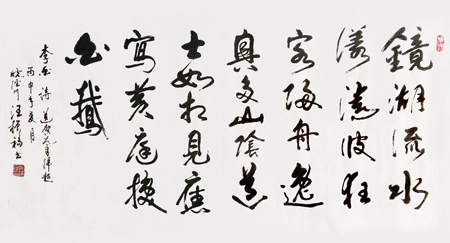 鏡湖流水
漾清波狂
客歸舟逸
興多山陰道
士如相見應
寫黃庭換
白鵝
李白詩送賀賓客歸越
丙申年月
汪振福書